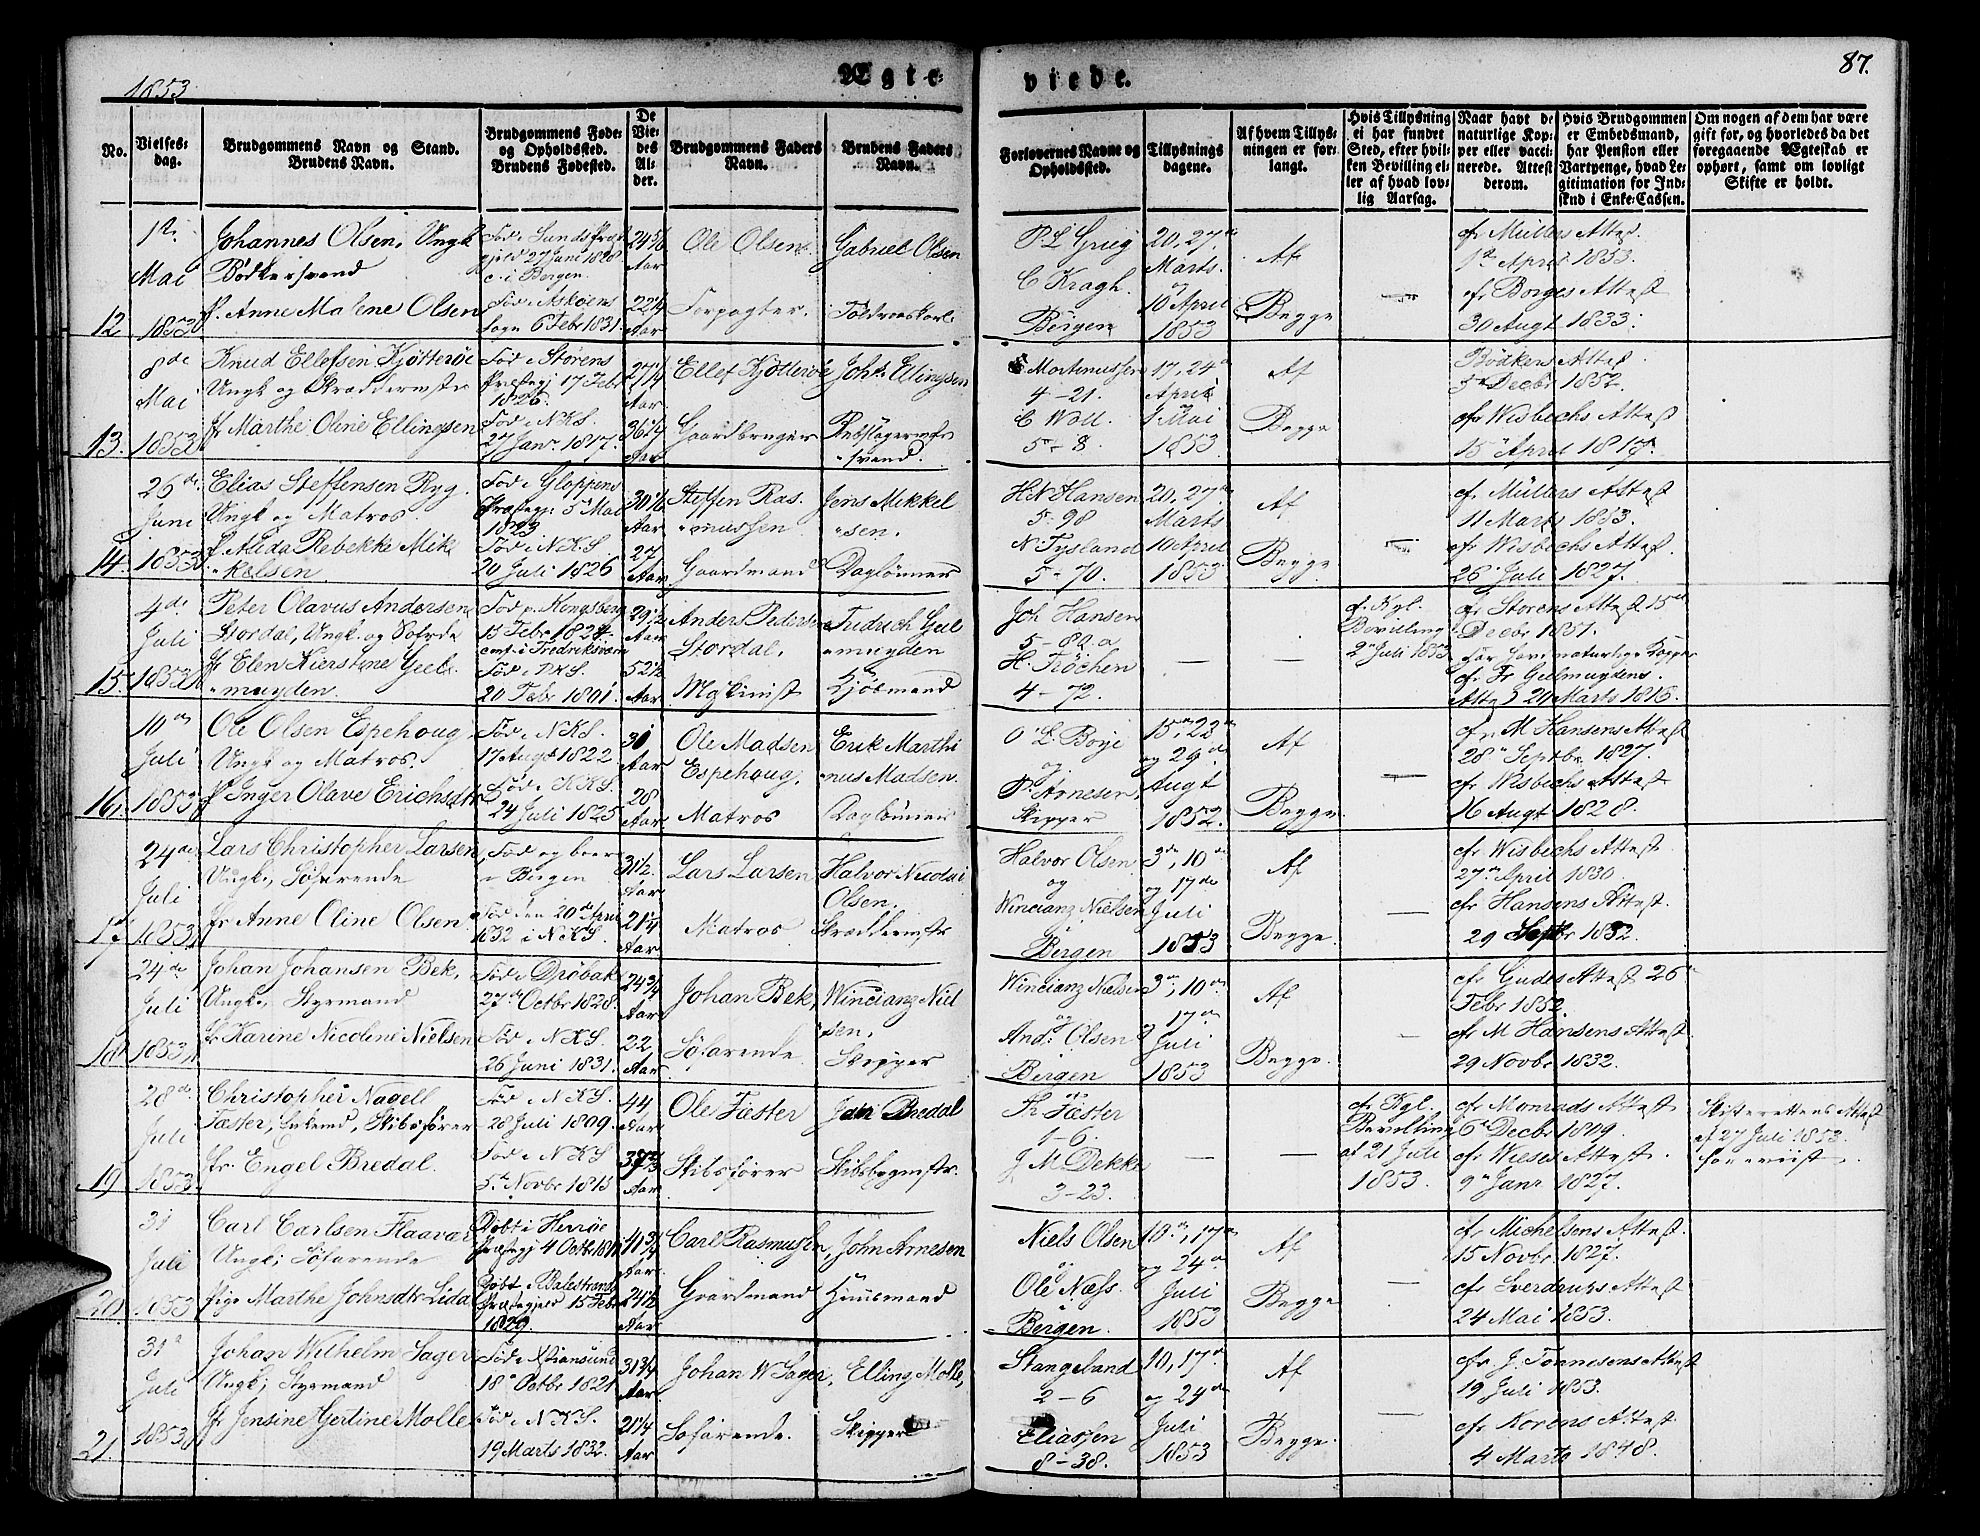 1853
Ægte-
viede.
87.
No.
Vielses-
dag.
Brudgommens Navn og Stand.
Brudens Navn.
Brudgommens Føde-
og Opholdssted.
Brudens Fødested.
De
Vie-
des
Al-
der.
Brudgommens Faders
Navn.
Brudens Faders
Navn.
Forlovernes Navne og
Opholdssted.
Tillysnings
dagene.
Af hvem Tillys-
ningen er for-
langt.
Hvis Tillysning
ei har fundet
Sted, efter hvil-
ken Bevilling el-
ler af hvad lov-
lig Aarsag.
Naar havt de
naturlige Kop-
per eller vacci-
nerede. Attest
derom.
Hvis Brudgommen
er Embedsmand,
har Pension eller
Vartpenge, hvad Le-
gitimation for Ind-
skud i Enke-Cassen.
Om nogen af dem har være
gift før, og hvorledes da det
foregaaende Ægteskab er
ophørt, samt om lovligt
Skifte er holdt.
12
1ste
Mai
1853
Johannes Olsen, Ungk
Bødkersvend
P. Anne Malene Olsen
Fød i Sunds Præ
gjeld 27 Juni 1828
c. i Bergen
Fød i Askøens
Sogn 6 Febr 1831.
24 5/6
Aar
22 1/4
Aar
Ole Olsen
Forpagter.
Gabriel Olsen
P L Grieg
C Kragh.
Bergen
20, 27de
Marts.
og
10 April
1853
Af
Begge
cfr Müllers Attest.
1ste April 1853.
cfr Borges Attest
30 Augt 1833.
13.
8de
Mai
1853
Knud Ellefsen Kjøtterøe
Ungk og Skræddermstr
Jfr Marthe Oline Ellingsen
Fød i Størens
Præstegj 17 Febr
1826.
Fød i N.K.S.
27 Janr. 1817.
27 1/4
Aar.
36 1/4
Aar
Ellef Kjøtterøe
Gaardbruger
Johs. Ellingsen
Rebslagerm
svend.
Mortmussen
4-21.
C Woll.
5-8
17, 24de
April
1 Mai
1853
Af
Begge
Bødkers Attest
5te Decbr 1852.
cfr Wisbechs Attest
15de April 1817.
14.
26de
Juni
1853
Elias Steffensen Ryg.
Ungk og Matros.
P. Alida Rebekke Mik
kelsen.
Fød i Gloppens
Præstegj. 5 Mai
1823
Fød i N K S
20 Juli 1826
30 1/6
Aar
27
Aar
Steffen Ras
mussen
Gaardmand
Jens Mikkel
sen.
Daglønner
H. N Hansen
5-98
N. Tysland
5-70.
20, 27de
Marts
10 April
1853
Af
Begge
cfr Müllers Attest
11 Marts 1853.
cfr Wisbechs Attest.
26 Juli 1827.
15.
4de
Juli
1853
Peter Olavus Andersen
Stordal, Ungk. og Søfrde
Jfr Elen Kierstine Geel
muyden.
Fød p. Kongsberg
15 Febr 1824
conf. i Fredriksværn
Fød i DKS.
20 Febr 1801.
29 1/2
Aar
52 1/2
Aar
Anders Pedersen
Stordal.
Maskinist
Fredrich Geel
muyden
Kjøbmand
Joh Hansen
5-82 a
H. Frøchen
4-72.
cf. Kgl.
Bevilling
2de Juli 1853
cfr Storens Attest 15de
Decbr 1851.
har havt naturlige Kopper
cfr Fr Gelmuydens
Attest 24 Marts 1816.
16.
10de
Juli
1853
Ole Olsen Espehoug,
Ungk og Matros.
P Inger Olave Erichsdtr
Fød i N K S.
17 Augt 1822
Fød i K K S.
24 Juli 1825
31
Aar
28
Aar
Ole Madsen
Espehoug,
Matros
Erik Marthi
nus Madsen.
Daglønner
O. L. Borje
og
P. Arnesen,
Skipper
15de, 22de
og 29de
Augt
1852.
Af
Begge.
cfr. M Hansens Attest
28de Septbr 1827.
cfr Wisbechs Attest
16 Augt 1828.
17
24de
Juli
1853
Lars Christopher Larsen,
Ungk., Søfarende
Jfr Anne Oline Olsen.
Fød og boer
i Bergen
Fød den 20de April
1832 i N K S.
31 1/2.
Aar
21 1/4
Aar
Lars Larsen
Matros
Halvor Nicolai
Olsen.
Skræddermstr.
Halvor Olsen
og
Wincianz Nielsen
Bergen
3de, 10de
og 17de
Juli
1853
Af
Begge.
cfr Wisbechs Attest
27de April 1830
cfr Hansens Attest.
29 Septbr 1832.
18
24de
Juli
1853
Johan Johansen Bek,
Ungk., Styrmand
Jfr Karine Nicoline Nielsen
Fød i Drøbak
27de Octbr 1828.
Fød i N K S.
26 Juni 1831.
24 3/4
Aar
22
Aar
Johan Bek,
Søfarende
Wincianz Niel
sen.
Skipper
Wincianz Nielsen
og
And. Olsen
Bergen
3de, 10de
og 17de
Juli
1853
Af
Begge.
cfr. Gudes Attest 26de
Febr 1852.
cfr M Hansens Attest
29 Novbr 1832.
19
28de
Juli
1853.
Christopher Nagell
Fæster, Enkemd, Skibsfører
Jfr. Engel Bredal.
Fød i N K S
28 Juli 1809.
Fød i N K S
5te Novbr 1815
44
Aar
37 2/3
Aar
Ole Fæster
Skibsfører
Jan Bredal
Skibsbygmstr.
Fr Fæster
1-6.
J. M Dekke
3-23.
cf Kgl.
Bevilling
af 21 Juli
1853.
cfr Monrads Attest
6te Decbr 1819.
cfr Wieses Attest.
9de Janr 1827.
Skifterettens Attest
af 27 Juli 1853
foreviist
20
31
Juli
1853
Carl Carlsen Flaavær
Ungk; Søfarende
Pige Marthe Johnsdtr Lida
Døbt i Herrøe
Præstegj 4 Octbr 1811
Døbt i Balestrand
Præstegjeld 15 Febr
1829.
41 3/4
Aar
24 1/2
Aar
Carl Rasmusen,
Gaardmand
John Arnesen
Huusmand
Niels Olsen
og
Ole Næss.
Bergen.
10de, 17de
og 24de
Juli
1853
Af
Begge
cfr Michelsens Attest.
15 Novbr 1827.
cfr Sverdrups Attest
24 Mai 1853.
21.
31te
Juli
1853
Johan Wilhelm Sager
Ungk; Styrmand
Jfr Jensine Gertine Molle
Fød i Xtiansund
18de Octbr 1821
Fød i N K S.
19 Marts 1832.
31 3/4
Aar.
21 1/4
Aar
Johan W Sager,
Søfarende.
Elling Molle,
Skipper
Stangeland
2-6
Eliassen
8-38.
10, 17de
og 24de
Juli
1853
Af
Begge.
cfr J. Tønnesens Attest
19 Juli 1853.
cfr Korens Attest
4 Marts 1848.